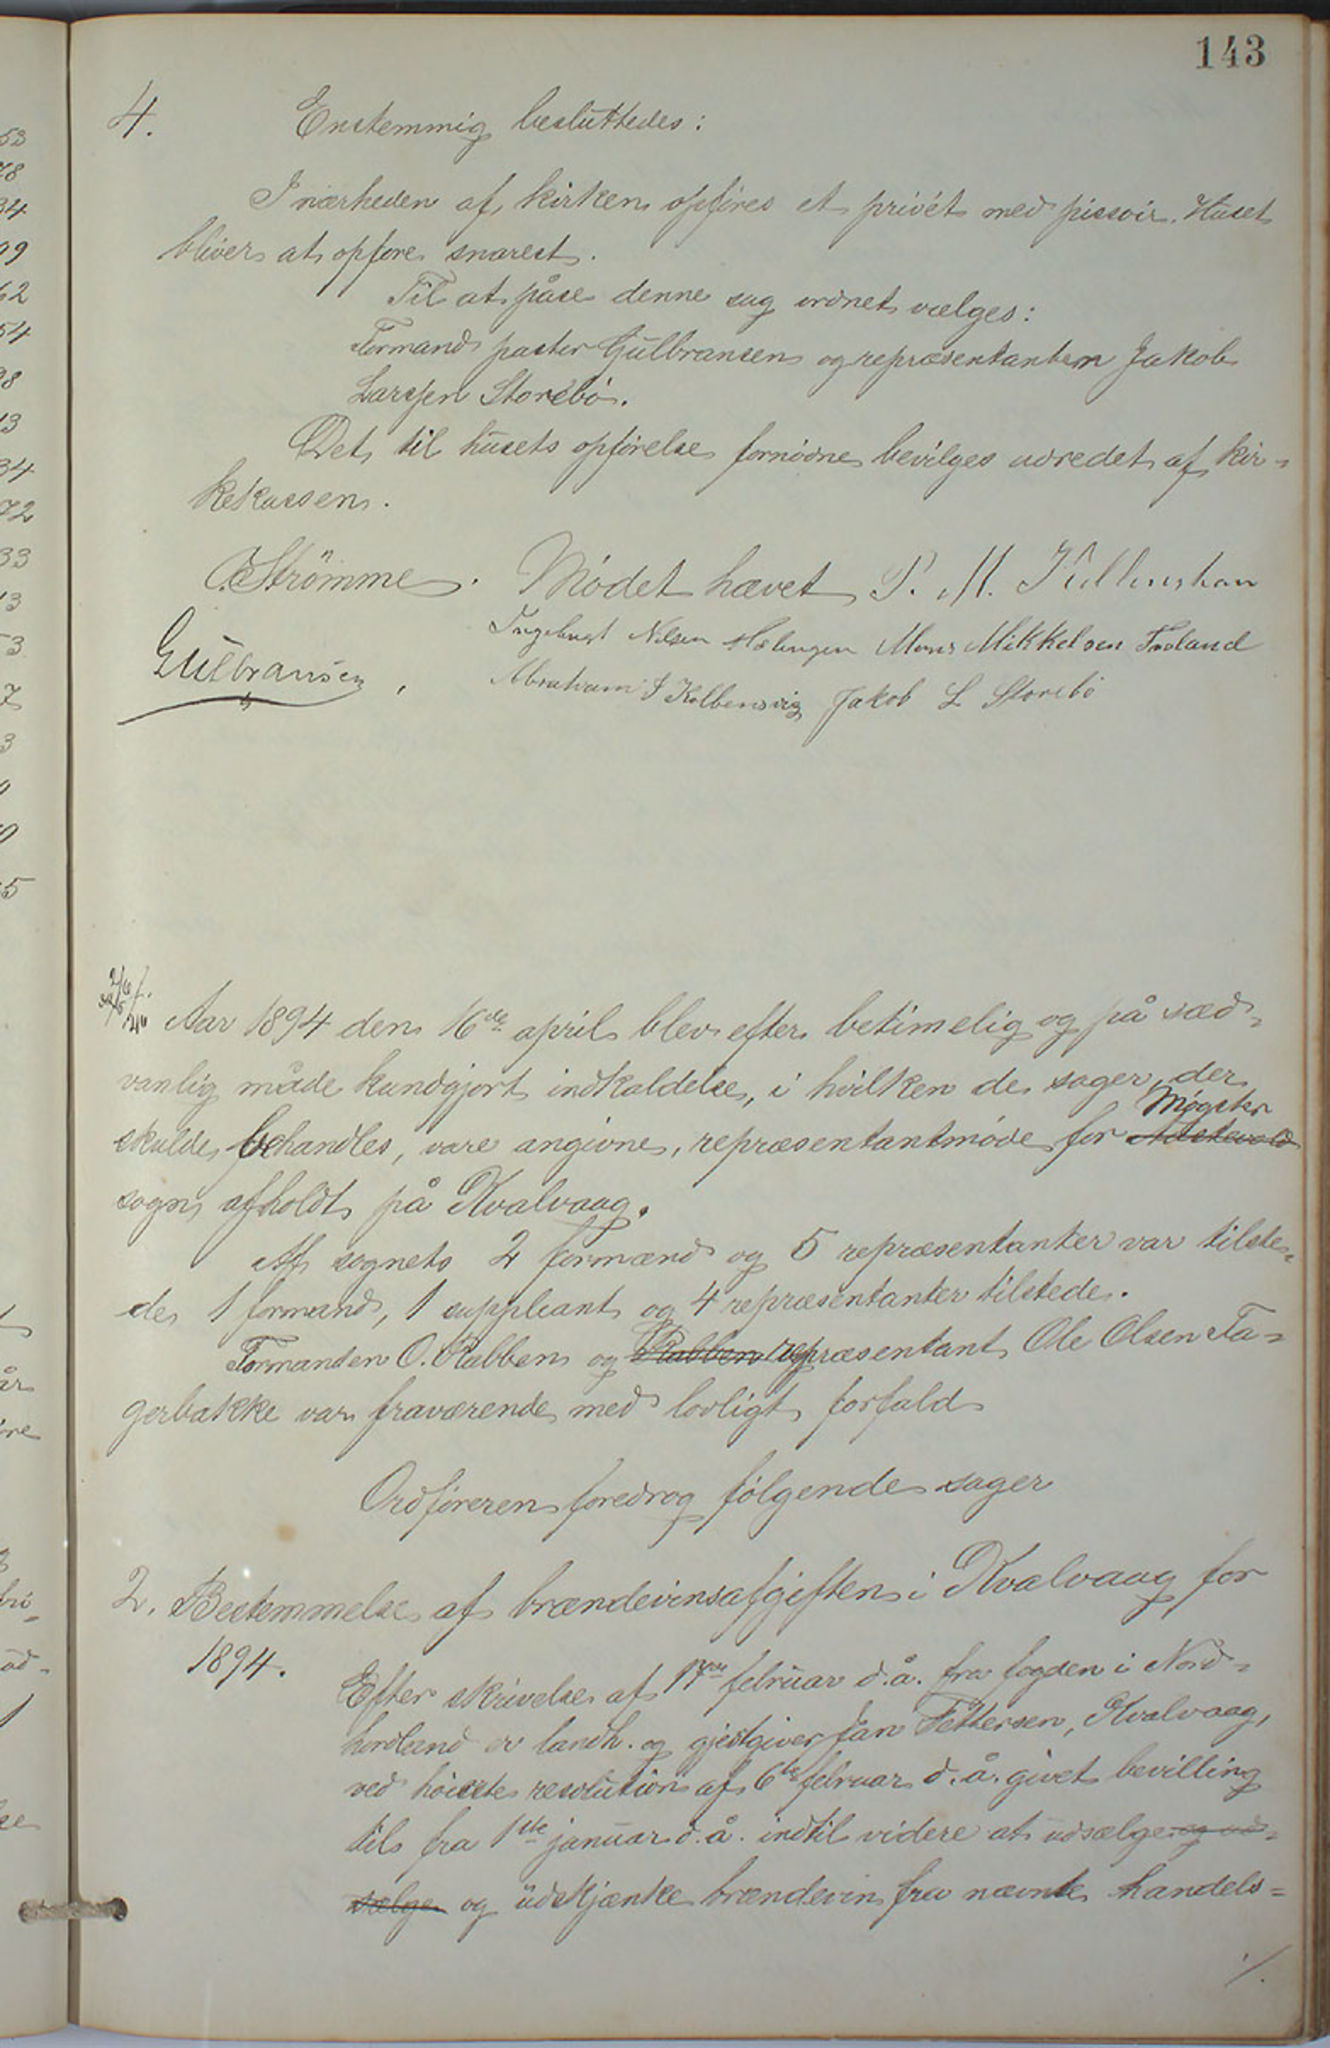 143
4. Enstemmig besluttedes:
I nærheden af kirken opføres et privét med pissoir. Huset
bliver at opføre snarest.
Til at påse denne sag ordnet vælges:
Formand pastor Gulbransen og repræsentanten Jakob
Larssen Storebø.
Det til husets opførelse fornødne bevilges udredet af kir-
kekassen.
O. Strömme. Mødet hævet P. M.
Ingebrigt Nilsen Mons Mikkelsen Froland
Gulbransen, Abraham J Kolbensvig Jakob L Storebö
Aar 1894 den 16de april blev efter betimelig og på sæd-
vanlig måde kundgjort indkaldelse, i hvilken de sager, der
Møgster
skulde behandles, vare angivne, repræsentantmøde for Austevold
sogn afholdt på Kvalvaag.
Af sognets 2 formænd og 5 repræsentanter var tilste-
de 1 formand, 1 suppleant og 4 repræsentanter tilstede.
Formanden O. Rabben og Rabben repræsentant Ole Olsen Fa-
gerbakke var fraværende med lovligt forfald
Ordføreren foredrog følgende sager
2. Bestemmelse af brændevinsafgiften i Kvalvaag for
1894.
Efter skrivelse af 17de februar d.å. fra fogden i Nord-
hordland er landh. og gjestgiver Jan Fettersen, Kvalvaag,
ved høieste resolution af 6te februar d.å. givet bevilling
til fra 1ste januar d.å. indtil videre at udsælge og ud-
sælge og udskjænke brændevin fra nævnte handels-
./.